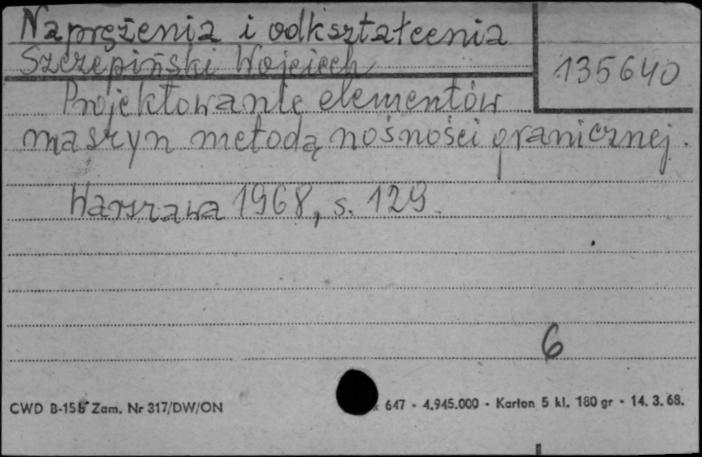 Naprężenia i odkształcenia
Szczepiński Wojciech
135640
Projektowanie elementów
maszyn metodą nośności granicznej.
Warszawa 1968, s. 129.
6
CWD B-155 Zam. Nr 317/DW/ON
647 - 4.945.000 - Karton 5 kl. 180 gr - 14. 3. 68.